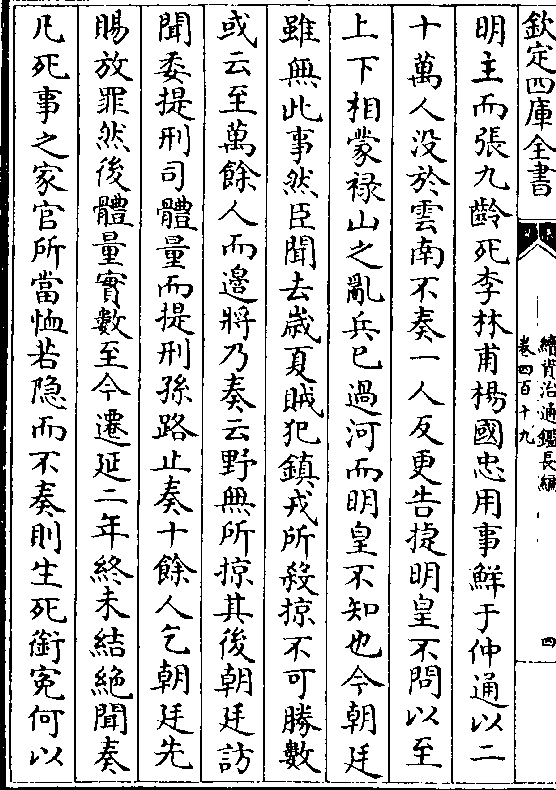 欽定四庫全書
續資治通鑑長編
卷四百十九
四
明主而張九齡死李林甫楊國忠用事鮮于仲通以二
十萬人没於雲南不奏一人反更告捷明皇不問以至
上下相蒙禄山之亂兵已過河而明皇不知也今朝廷
雖無此事然臣聞去歲夏賊犯鎮戎所殺掠不可勝數
或云至萬餘人而邉將乃奏云野無所掠其後朝廷訪
聞委提刑司體量而提刑孫路止奏十餘人乞朝廷先
賜放罪然後體量實數至今遷延二年終未結絶聞奏
凡死事之家官所當恤若隐而不奏則生死銜寃何以